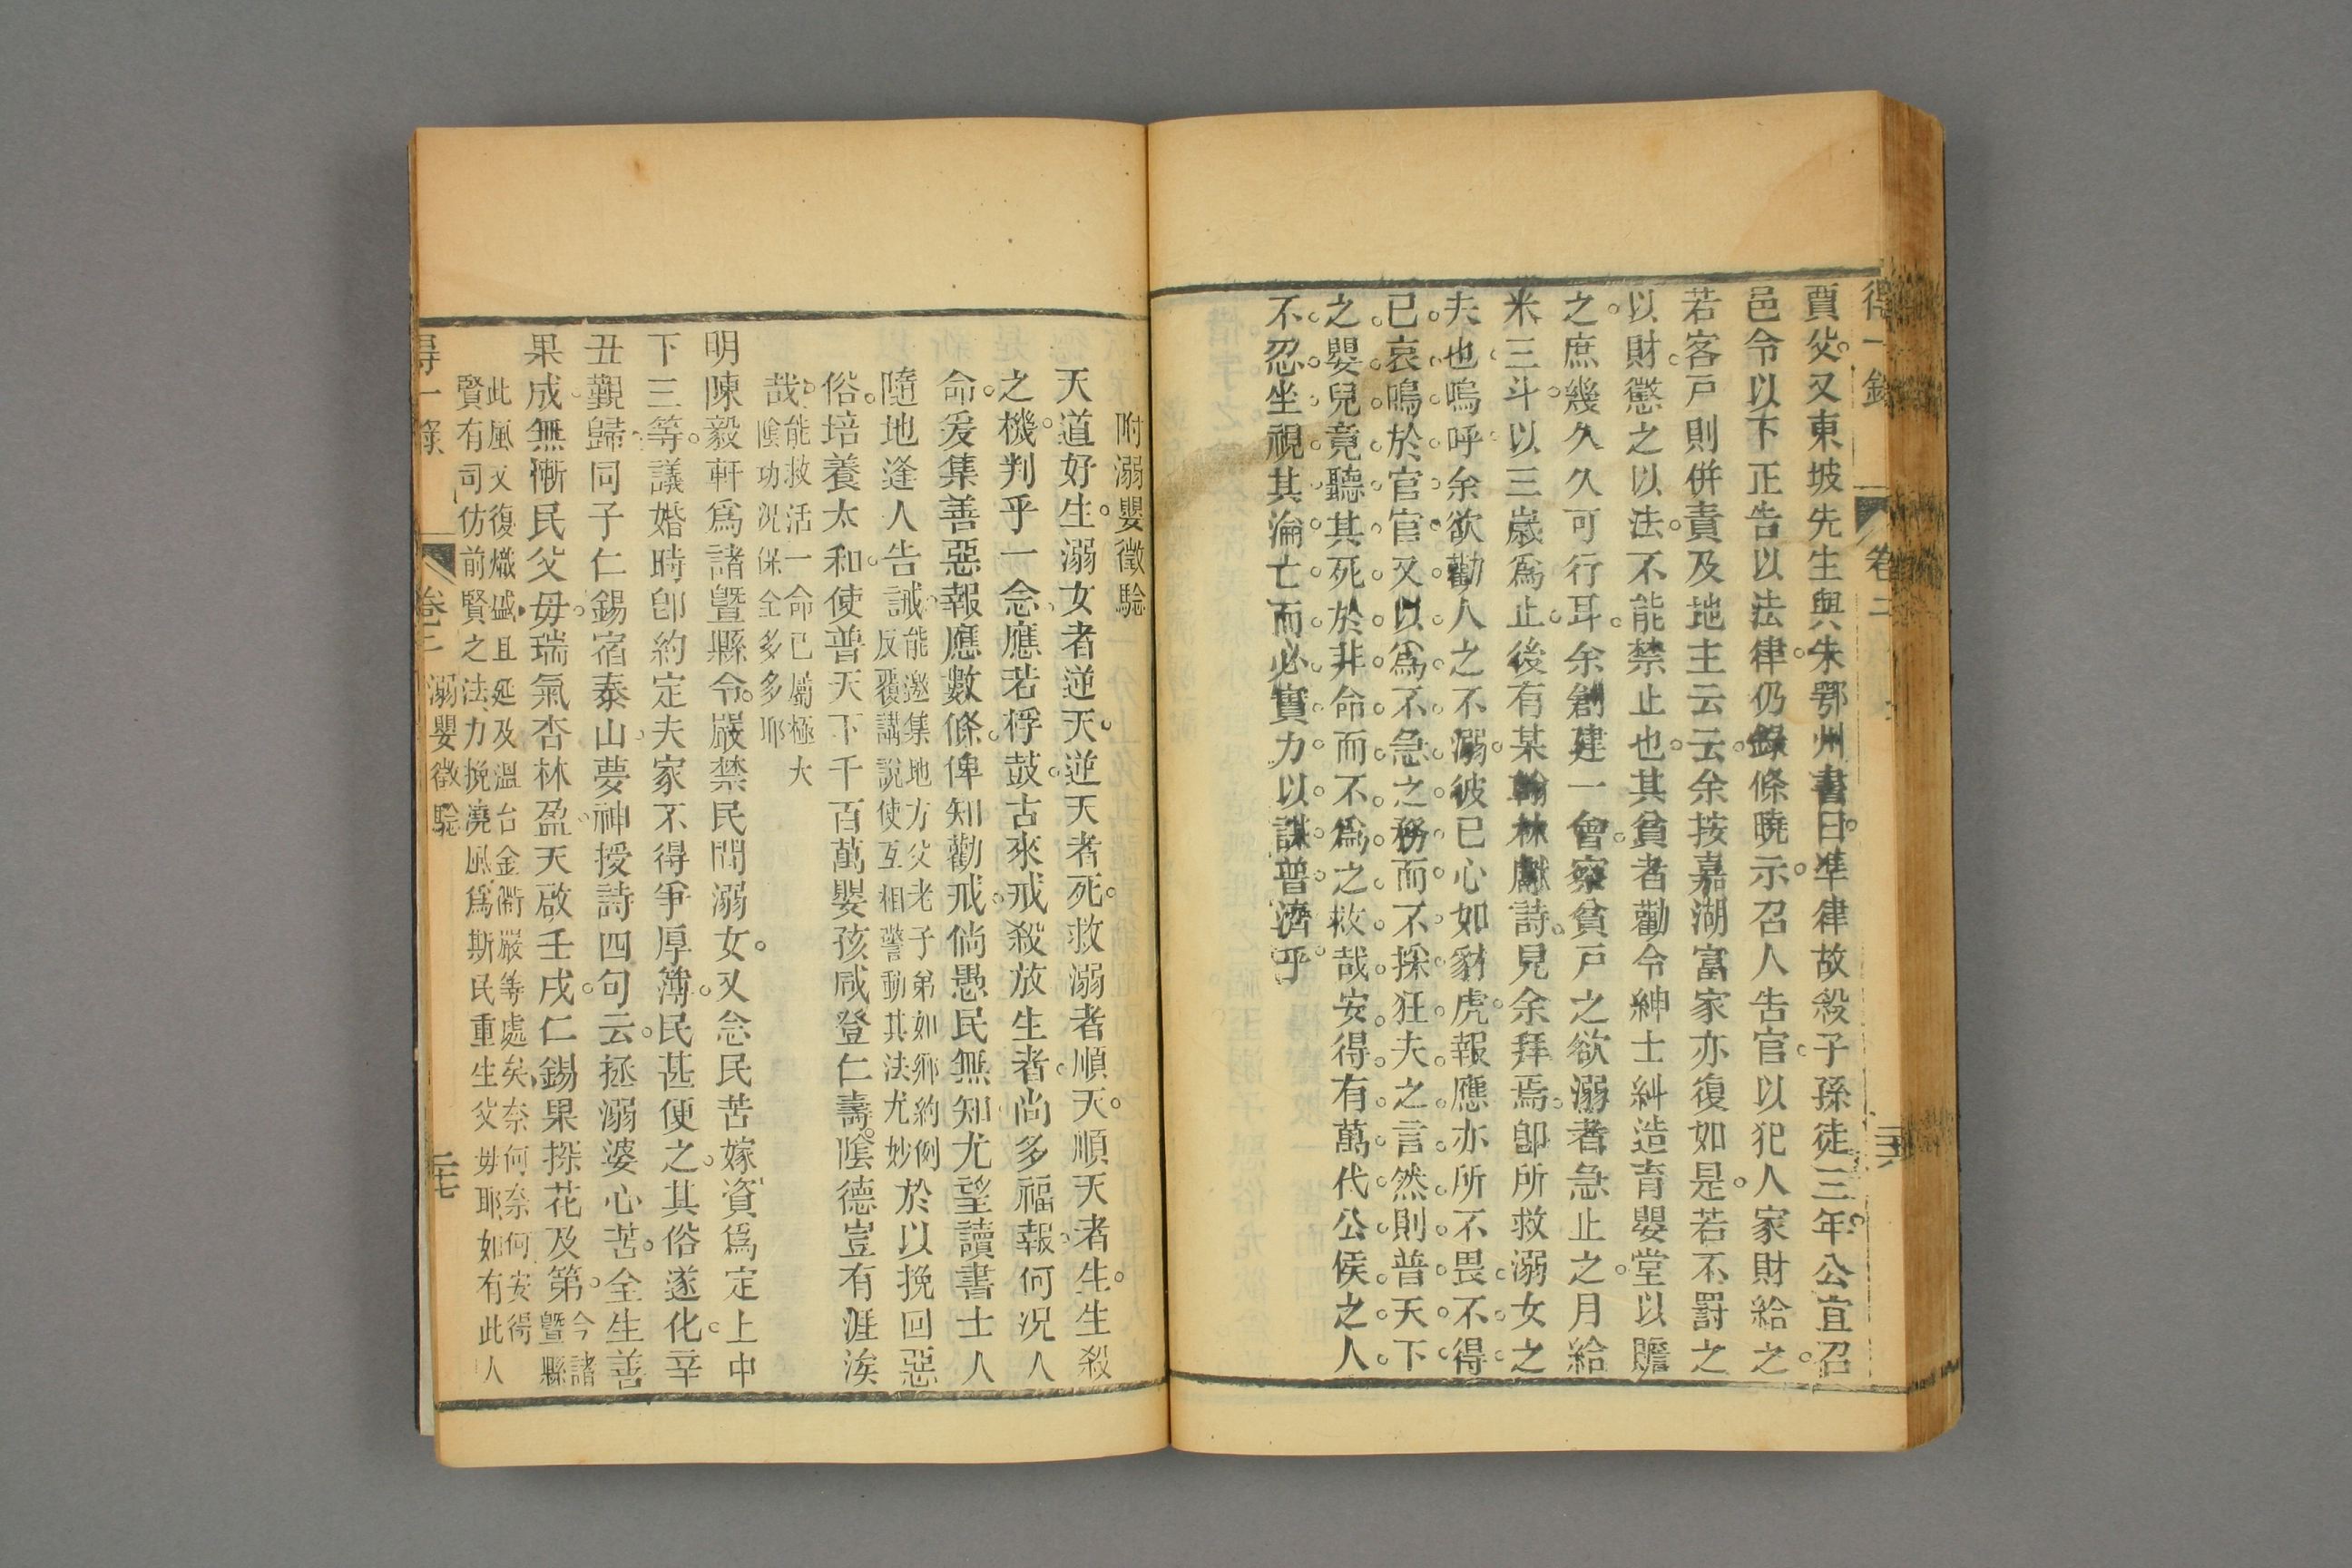 得一錄 卷二
賈父又東坡先生與朱鄂州書曰準律故殺子孫徒三年公宜召
邑令以下正告以法律仍錄條曉示召人告官以犯人家財給之
若客戸則併責及地主云云余按嘉湖富家亦復如是若不罰之
以財懲之以法不能禁止也其貧者勸令紳士糾造育嬰堂以贍
之庶幾久久可行耳余創建一會察貧戸之欲溺者急止之月給
米三斗以三歲爲止後有某翰林獻詩見余拜焉卽所救溺女之
夫也嗚呼余欲勸人之不溺彼已心如豺虎報應亦所不畏不得
已哀鳴於官官又以爲不急之務而不採狂夫之言然則普天下
之嬰兒竟聽其死於非命而不爲之救哉安得有萬代公侯之人
不忍坐視其淪亡而必實力以謀普濟乎
附溺嬰徵驗
天道好生溺女者逆天逆天者死救溺者順天順天者生生殺
之機判乎一念應若桴鼓古來戒殺放生者尚多福報何況人
命爰集善惡報應數條俾知勸戒倘愚民無知尤望讀書士人
隨地逢人告誡能邀集地方父老子弟如鄉約例反覆講說使互相警動其法尤妙於以挽回惡
俗培養太和使普天下千百萬嬰孩咸登仁壽陰德豈有涯涘
哉能救活一命已屬極大陰功況保全多多耶
明陳毅軒爲諸曁縣令嚴禁民間溺女又念民苦嫁資爲定上中
下三等議婚時卽約定夫家不得爭厚薄民甚便之其俗遂化辛
丑覲歸同子仁錫宿泰山夢神授詩四句云拯溺婆心苦全生善
果成無慚民父毋瑞氣杏林盈天啟壬戌仁錫果探花及第今諸曁縣
此風又復熾盛且延及溫台金衢嚴等處矣奈何奈何安得
賢有司仿前賢之法力挽澆風爲斯民重生父毋耶如有此人
得一錄 卷二 溺嬰徵驗